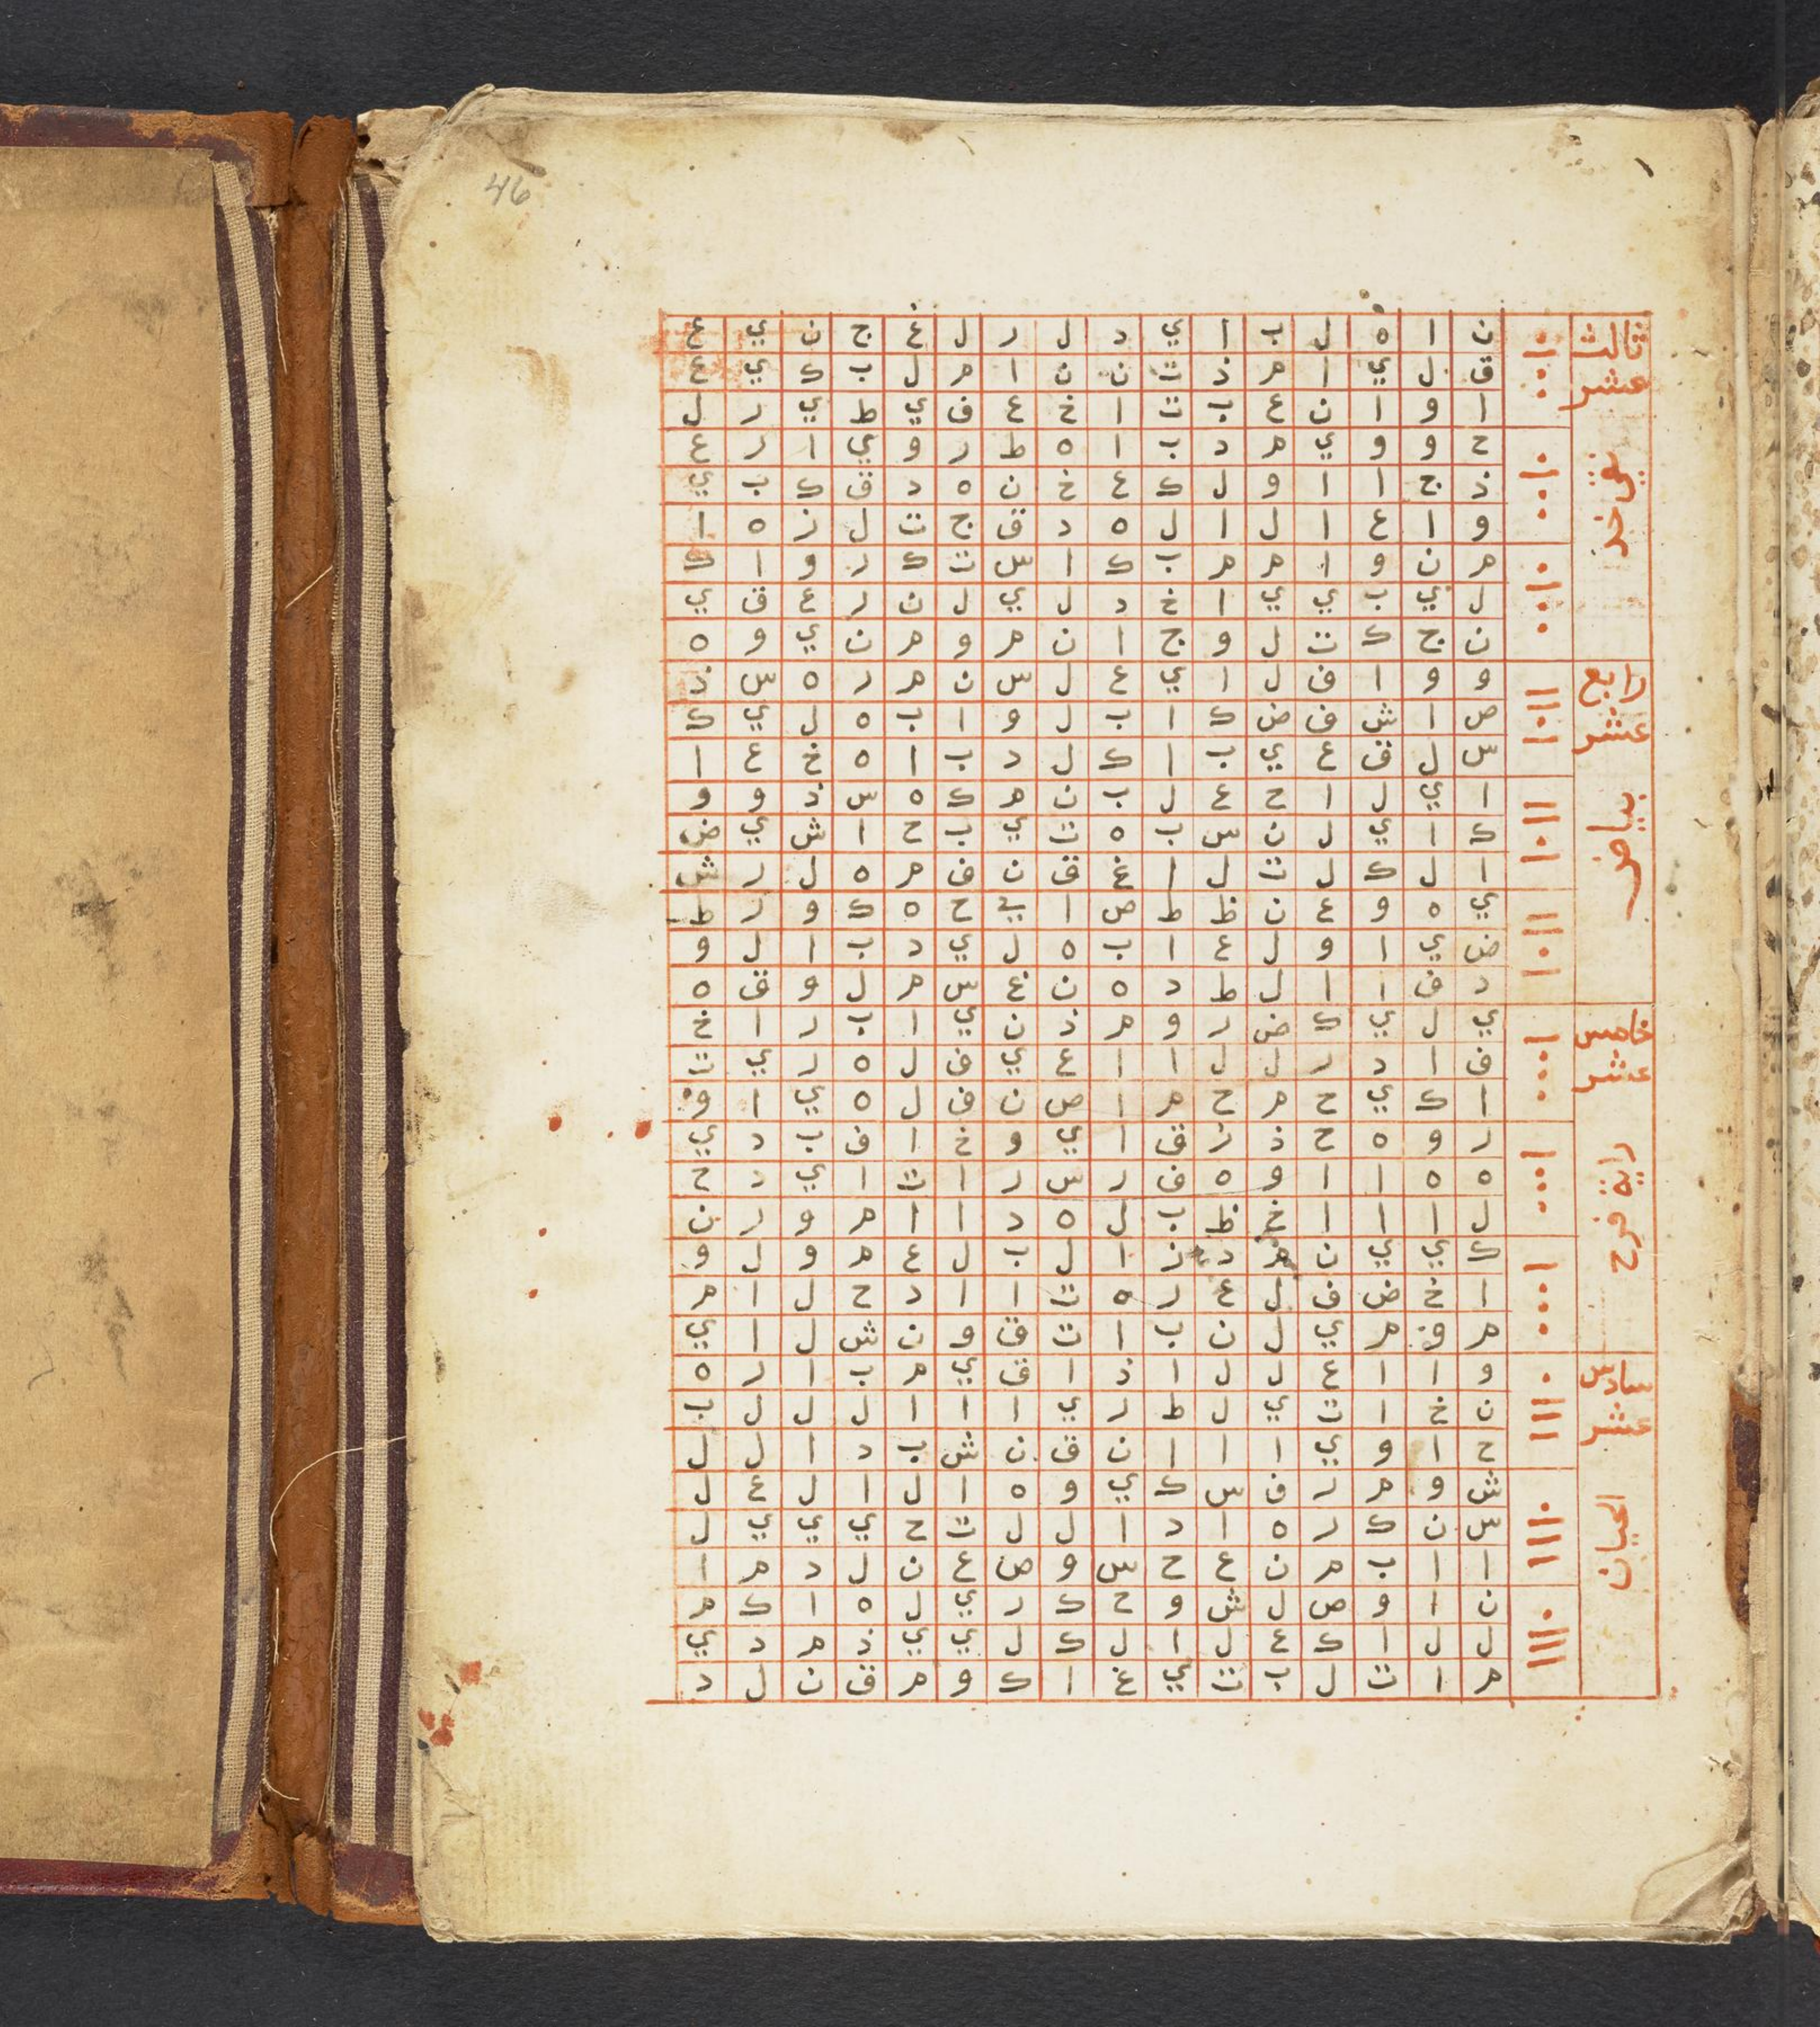 46
ن ا ه ل ب ا ي د ل ر ل غ ج ن ي ع
ق ل ي ا م ذ ت ن ن ا م ل ب ك ي ع
ا و ا ن ع ب ت ا خ ع ف ي ط ي ر ل
ح و و ي م د ب ا ه ط ر و ي ا ر ع
ذ ج ا ا و ل ك ع خ ن ه د ق ك ب ي
و ا ع ا ل ا ل ه د ق ج ت ل ز ه ا
م ن و ا م م ب ك ا س ت ك ر و ا ك
ل ي ب ي ي ا خ د ل ي ل ن ر ع ق ي
ن ج ك ت ل و ج ا ن م و م ن ي و ه
و و ا ف ل ا ي ع ل س ن م ر ه س ذ
ص ا ش ف ض ك ا ب ل و ا ب ه ل ي ك
س ل ق ع ي ب ا ك ل د ب ا ه خ ع ا
ا ي ل ا ح ع ل ب ن م ك ه س ذ و و
ك ا ي ل ن س ب ه ت ي ب ح ا ش ي ض
ا ل ك ل ت ل ا غ ق ن ف م ه ل ر ش
ي ه و ع ن ظ ط ص ا ي ح ه ك و ر ط
ض ي ا و ل ع ا ب ه ل ي د ب ا ل و
د ف ا ا ل ط د ه ن غ س م ل و ق ه
ي ل ي ك ض ر و م ذ ن ي ا ب ر ا خ
ف ا د ر ل ل ا ا ع ي ف ل ه ر ي ت
ا ك ي ح م ح م ا ص ن ف ل ه ي ا و
ر و ه ح ذ ز ق ا ي و خ ا ف ب د ي
ه ه ا ا و ه ف ر س ر ا ت ا ي د ح
ل ا ا ا خ ظ ب ل ه د ا ا م و ر ن
ك ي ي ن م د ز ا ل ب ل ع م و ل و
ا خ ض ف ل ع ر ه ت ا ا د ح ل ا م
م و م ي ل ن ب ا ت ق و ن ش ل ا ي
و ا ا ع ل ل ا ذ ا ق ي م ب ا ر ه
ن خ ا ت ي ل ط ر ي ا ا ا ل ل ل ب
ح ا و ي ا ا ا ن ق ن ش ب د ا ل ل
ش و م ر ف س ك ي و ه ا ل ا ل ع ل
س ن ك ر ه ا د ا ل ل ت ح ي ي ي ل
ا ا ب م ن ع ح س و ص ع ن ل د م ا
ن ا و ص ل ش و ح ك ر ي ل ه ا ك م
ل ل ا ك ع ل ا ل ك ل ي ي ذ م د ي
م ا ت ل ب ت ي غ ا ك و م ق ن ل د
ثالث
عشر
نقي خد
رابع
عشر
بياض
خامس
عشر
راية فرح
سادس
عشر
الحيان